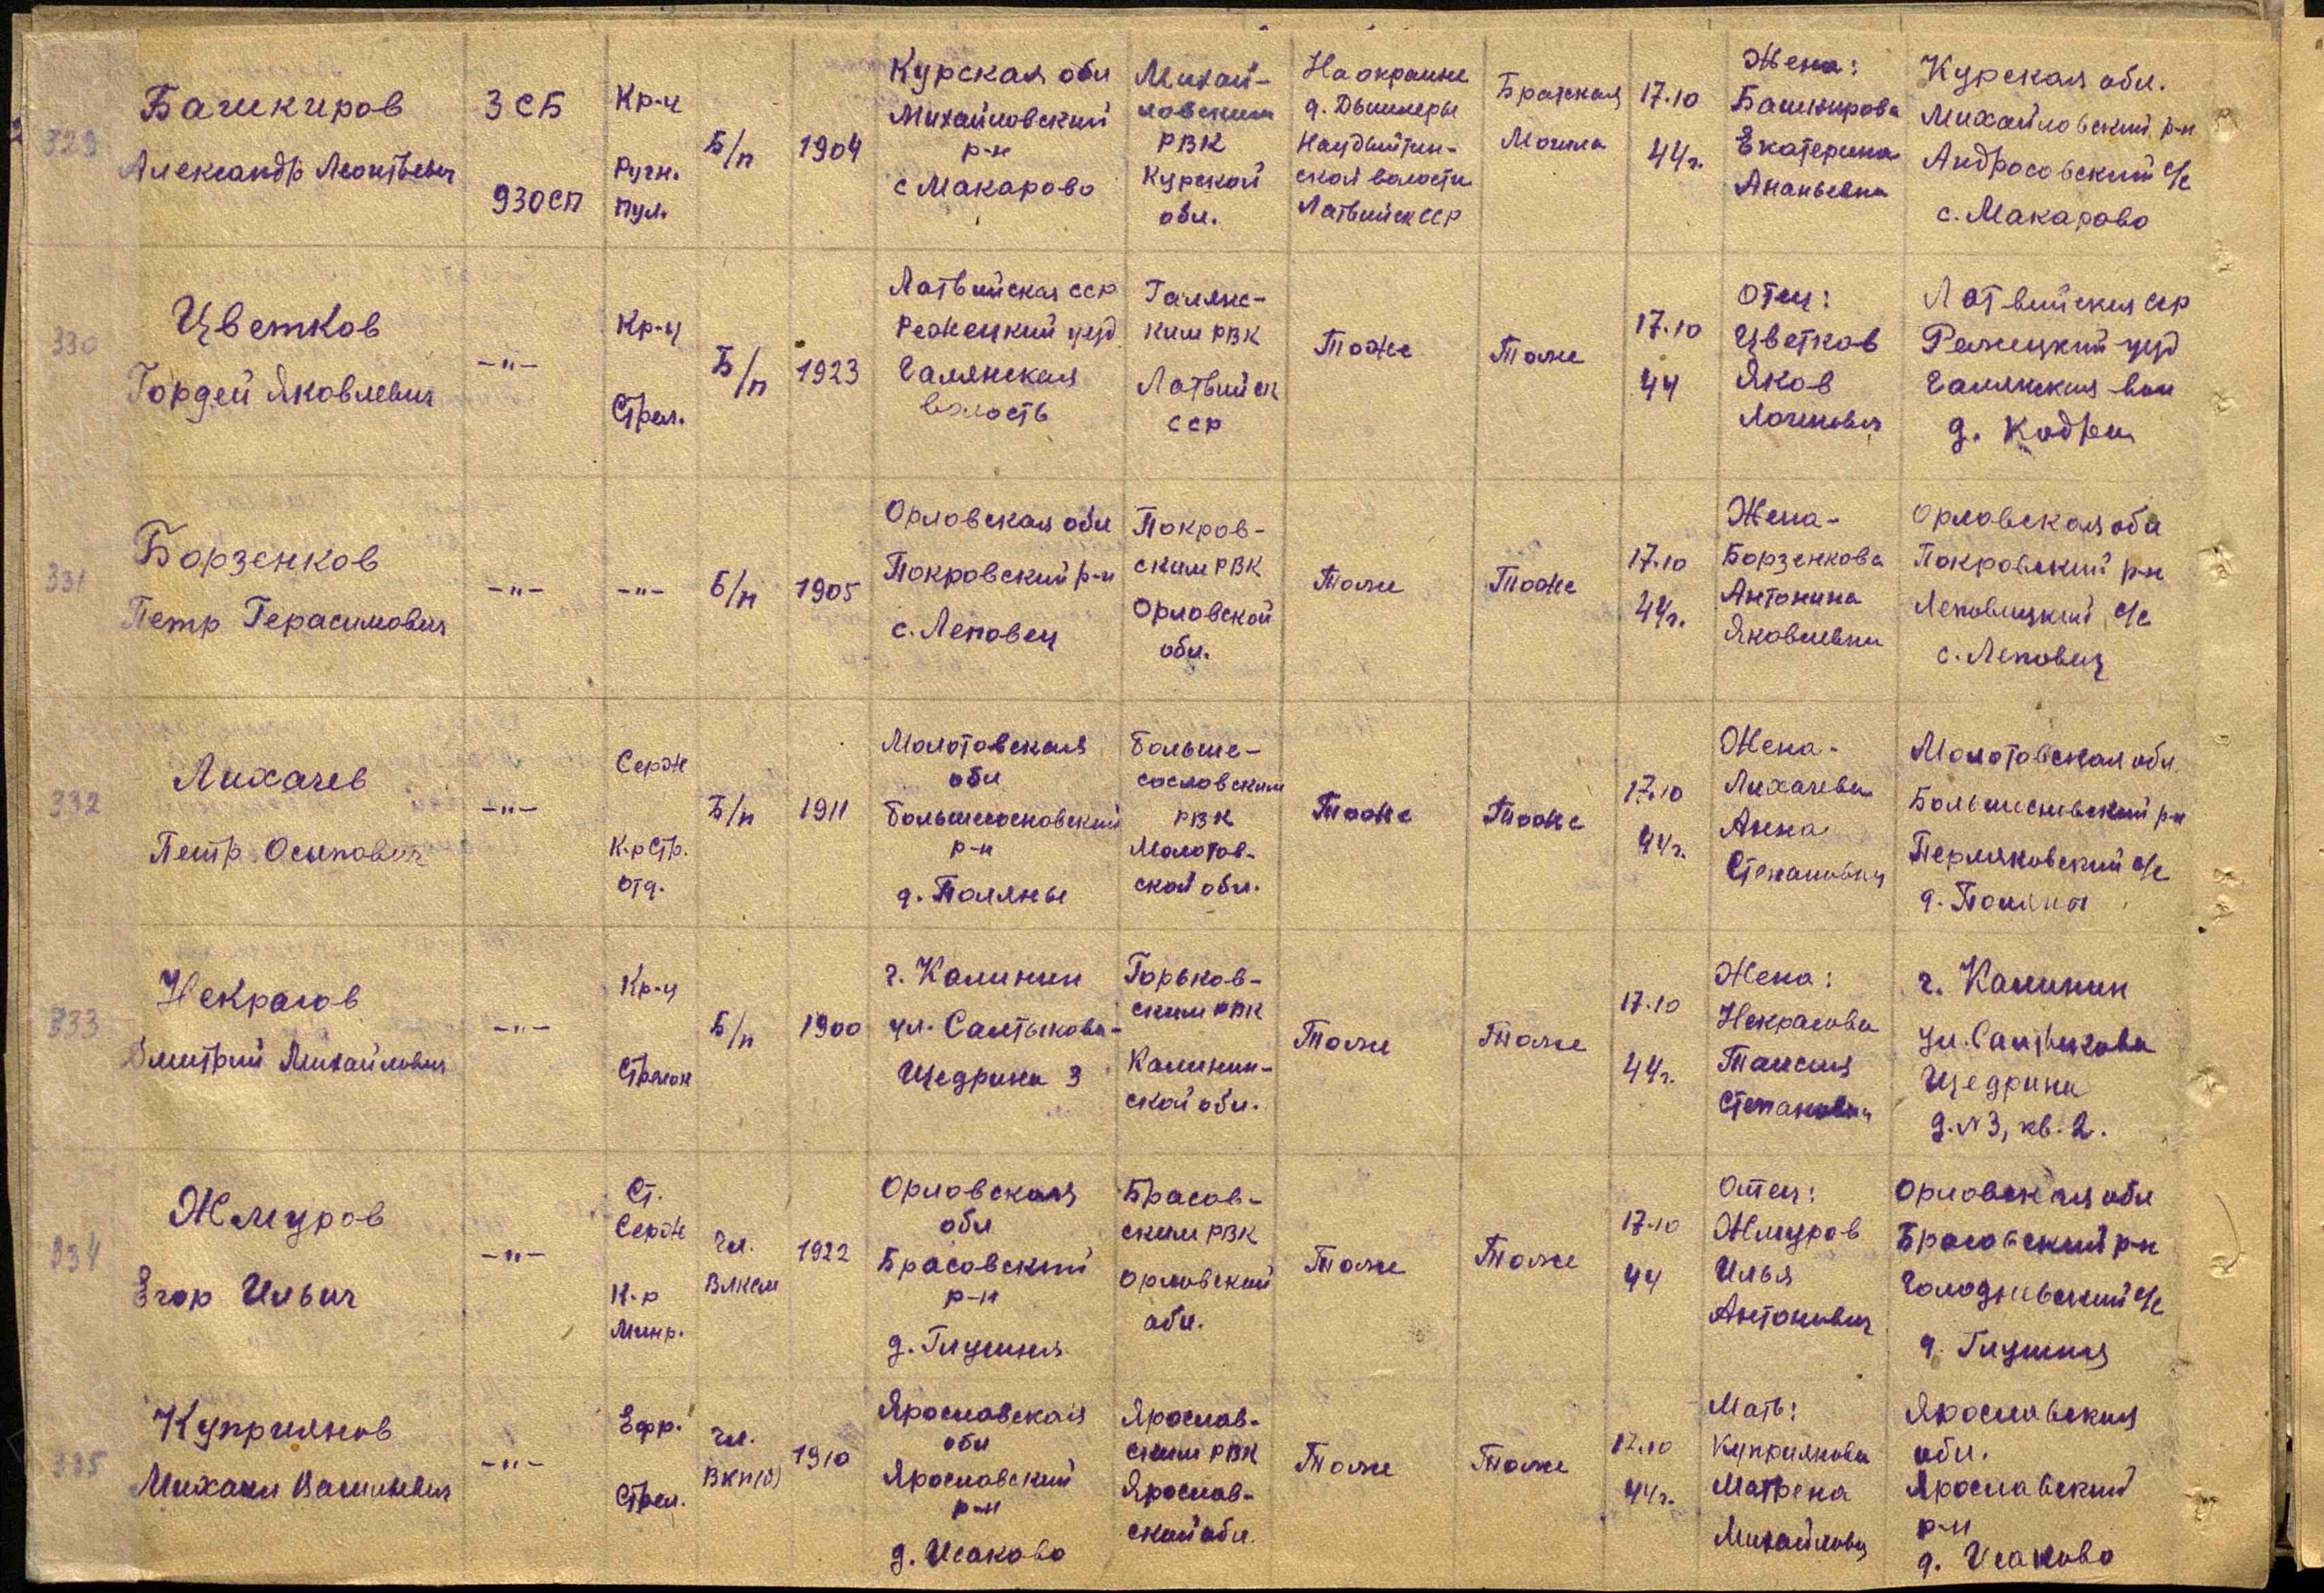 329
Башкиров
Александр Леонтьевич
3 СБ
930 СП
Кр-ц
Ручн.
пул.
Б/п
1904
Курская обл
Михайловский
р-н
с Макарово
Михай-
ловским
РВК
Курской
обл.
На окраине
д. Дышлеры
Наудыйтин-
ской волости
Латвийск ССР
Братская
Могила
17.10
44г.
Жена:
Башкирова
Екатерина
Ананьевна
Курская обл.
Михайловский р-н
Андросовский с/с
с. Макарово
330
Цветков
Гордей Яковлевич
-"-
Кр-ц
Стрел.
Б/п
1923
Латвийская ССР
Режецкий уезд
Галянская
волость
Галянс-
ким РВК
Латвийск
ССР
Тоже
Тоже
17.10
44
Отец:
Цветков
Яков
Латвийская ССР
Режицкий уезд
Галянская вол
д. Кодры
331
Борзенков
Петр Герасимович
-"-
-"-
Б/п
1905
Орловская обл
Покровский р-н
с. Леповец
Покров-
ским РВК
Орловской
обл.
Тоже
Тоже
17.10
44г.
Жена-
Борзенкова
Антонина
Яковлевна
Орловская обл
Покровский р-н
Леповецкий с/с
с. Леповец
332
Лихачев
Петр Осипович
-"-
Серж
К-р Стр.
отд.
Б/п
1911
Молотовская
обл
Большесосновский
р-н
д. Полянье
Больше-
сословским
РВК
Молотов-
ской обл.
Тоже
Тоже
17.10
44г.
Жена-
Лихачева
Анна
Степановна
Молотовская обл.
р-н
Перляковский с/с
д. Поляны
333
Некрасов
Дмитрий Михайлович
-"-
Кр-ц
Стрелок
Б/п
1900
г. Калинин
ул. Салтыкова-
Щедрина 3
Горьков-
ским РВК
Калинин-
ской обл.
Тоже
Тоже
17.10
44г.
Жена:
Некрасова
Таисия
Степановна
г. Калинин
ул. Салтыкова
Щедрина
д. N3, кв. 2.
334
Жмуров
Егор Ильич
-"-
Ст.
Серж
К-р
Минр.
Чл.
ВЛКСМ
1922
Орловская
обл
Брасовский
р-н
д. Глушня
Брасов-
ским РВК
Орловской
обл.
Тоже
Тоже
17.10
44
Отец:
Жмуров
Илья
Антонович
Орловская обл
Брасовский р-н
Голодневский с/с
д. Глушня
335
Куприянов
Михаил Васильевич
-"-
Ефр.
Стрел.
Чл.
ВКП(б)
1910
Ярославская
обл
Ярославский
р-н
д. Исаково
Ярослав-
ским РВК
Ярослав-
ской обл.
Тоже
Тоже
17.10
44г.
Мать:
Куприянова
Матрена
Михайловна
Ярославская
обл.
Ярославский
р-н
д. Исаково